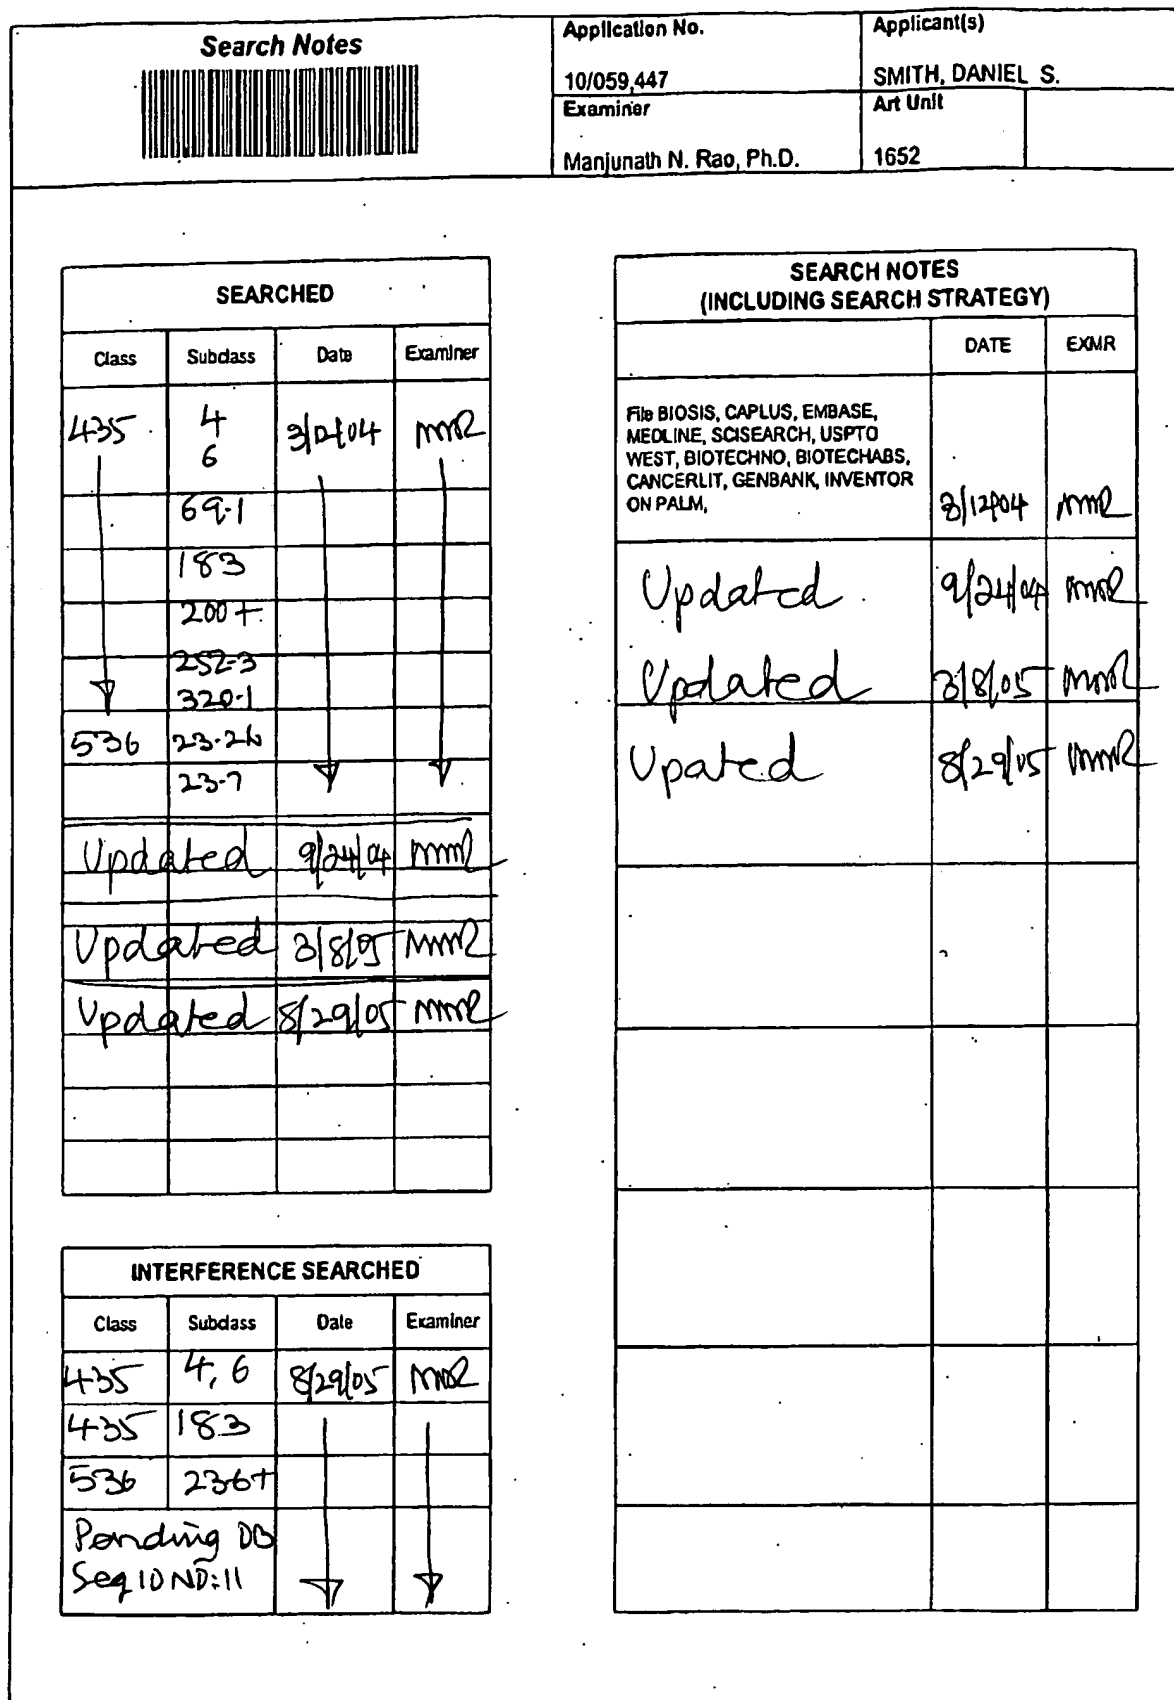 Search Notes
Application No.
10/059,447
Applicant(s)
SMITH, DANIEL S.
Examiner
Manjunath N. Rao, Ph.D.
Art Unit
1652
SEARCHED
Class Subclass Date Examiner
435 4 3/12/04 MNR
6
69.1
183
200+
252.3
320.1
536 23.2
23.7
Updated 9/24/04 MNR
Updated 3/8/05 MNR
Updated 8/29/05 MNR
INTERFERENCE SEARCHED
Class Subclass Date Examiner
435 4, 6 8/29/05 MNR
435 183
536 23.6+
Pending DB
Seq ID NO: 11
SEARCH NOTES
(INCLUDING SEARCH STRATEGY)
DATE EXMR
File BIOSIS, CAPLUS, EMBASE,
MEDLINE, SCISEARCH, USPTO
WEST, BIOTECHNO, BIOTECHABS,
CANCERLIT, GENBANK, INVENTOR
ON PALM, 3/12/04 MNR
Updated 9/24/04 MNR
Updated 3/8/05 MNR
Upated 8/29/05 MNR